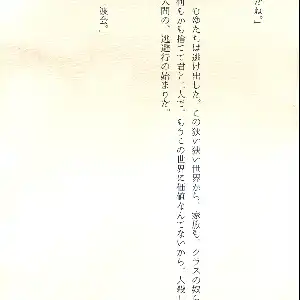 だね。」
たちは逃げ出した。この狭い狭い世界から。家族も、クラスの奴ら
もかも捨てて君と二人で。もうこの世界に価値なんてないから。人殺し
人間の、逃避行の始まりだ。
会。」